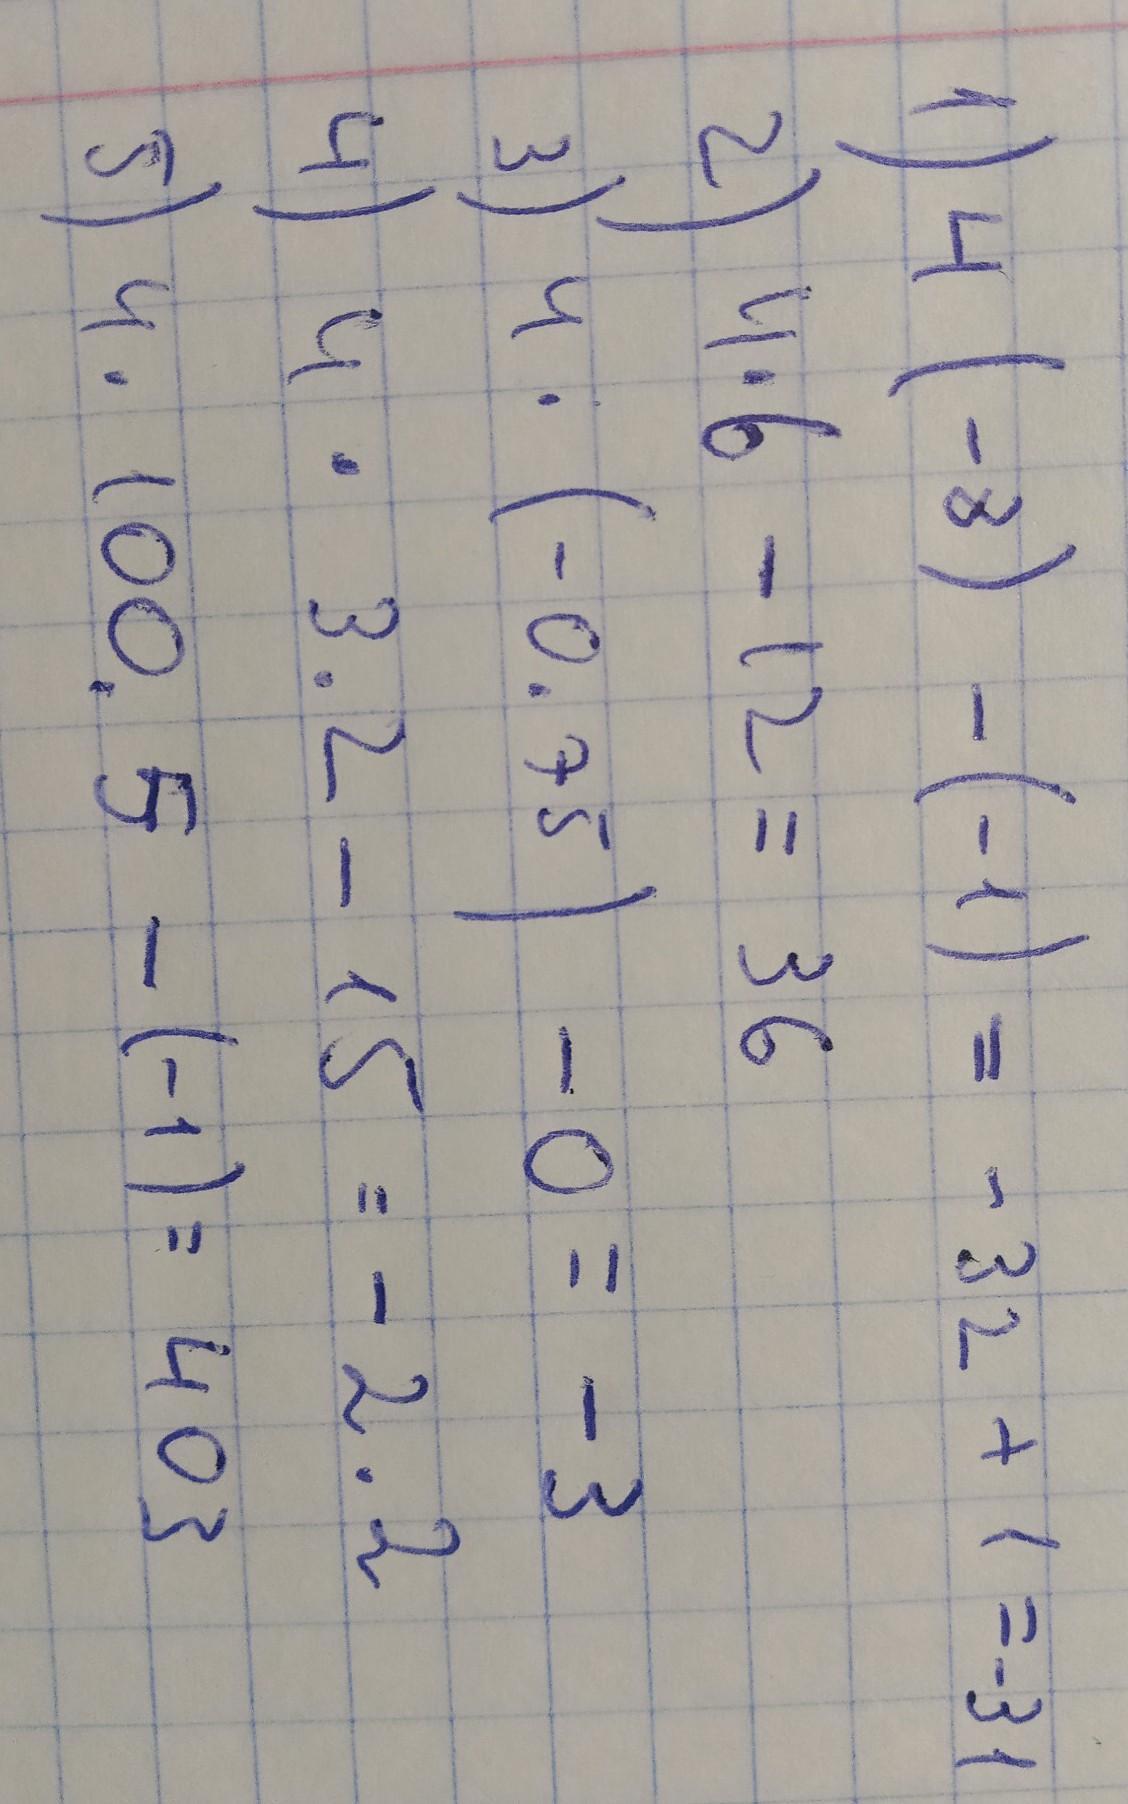 1) 4 (-8) - (-1) = -32 + 1 = -31
2) 4·6 - 12 = 36
3) 4 · (-0.75) - 0 = -3
4) 4 · 3.2 - 15 = -2.2
5) 4 · 100.5 - (-1) = 403